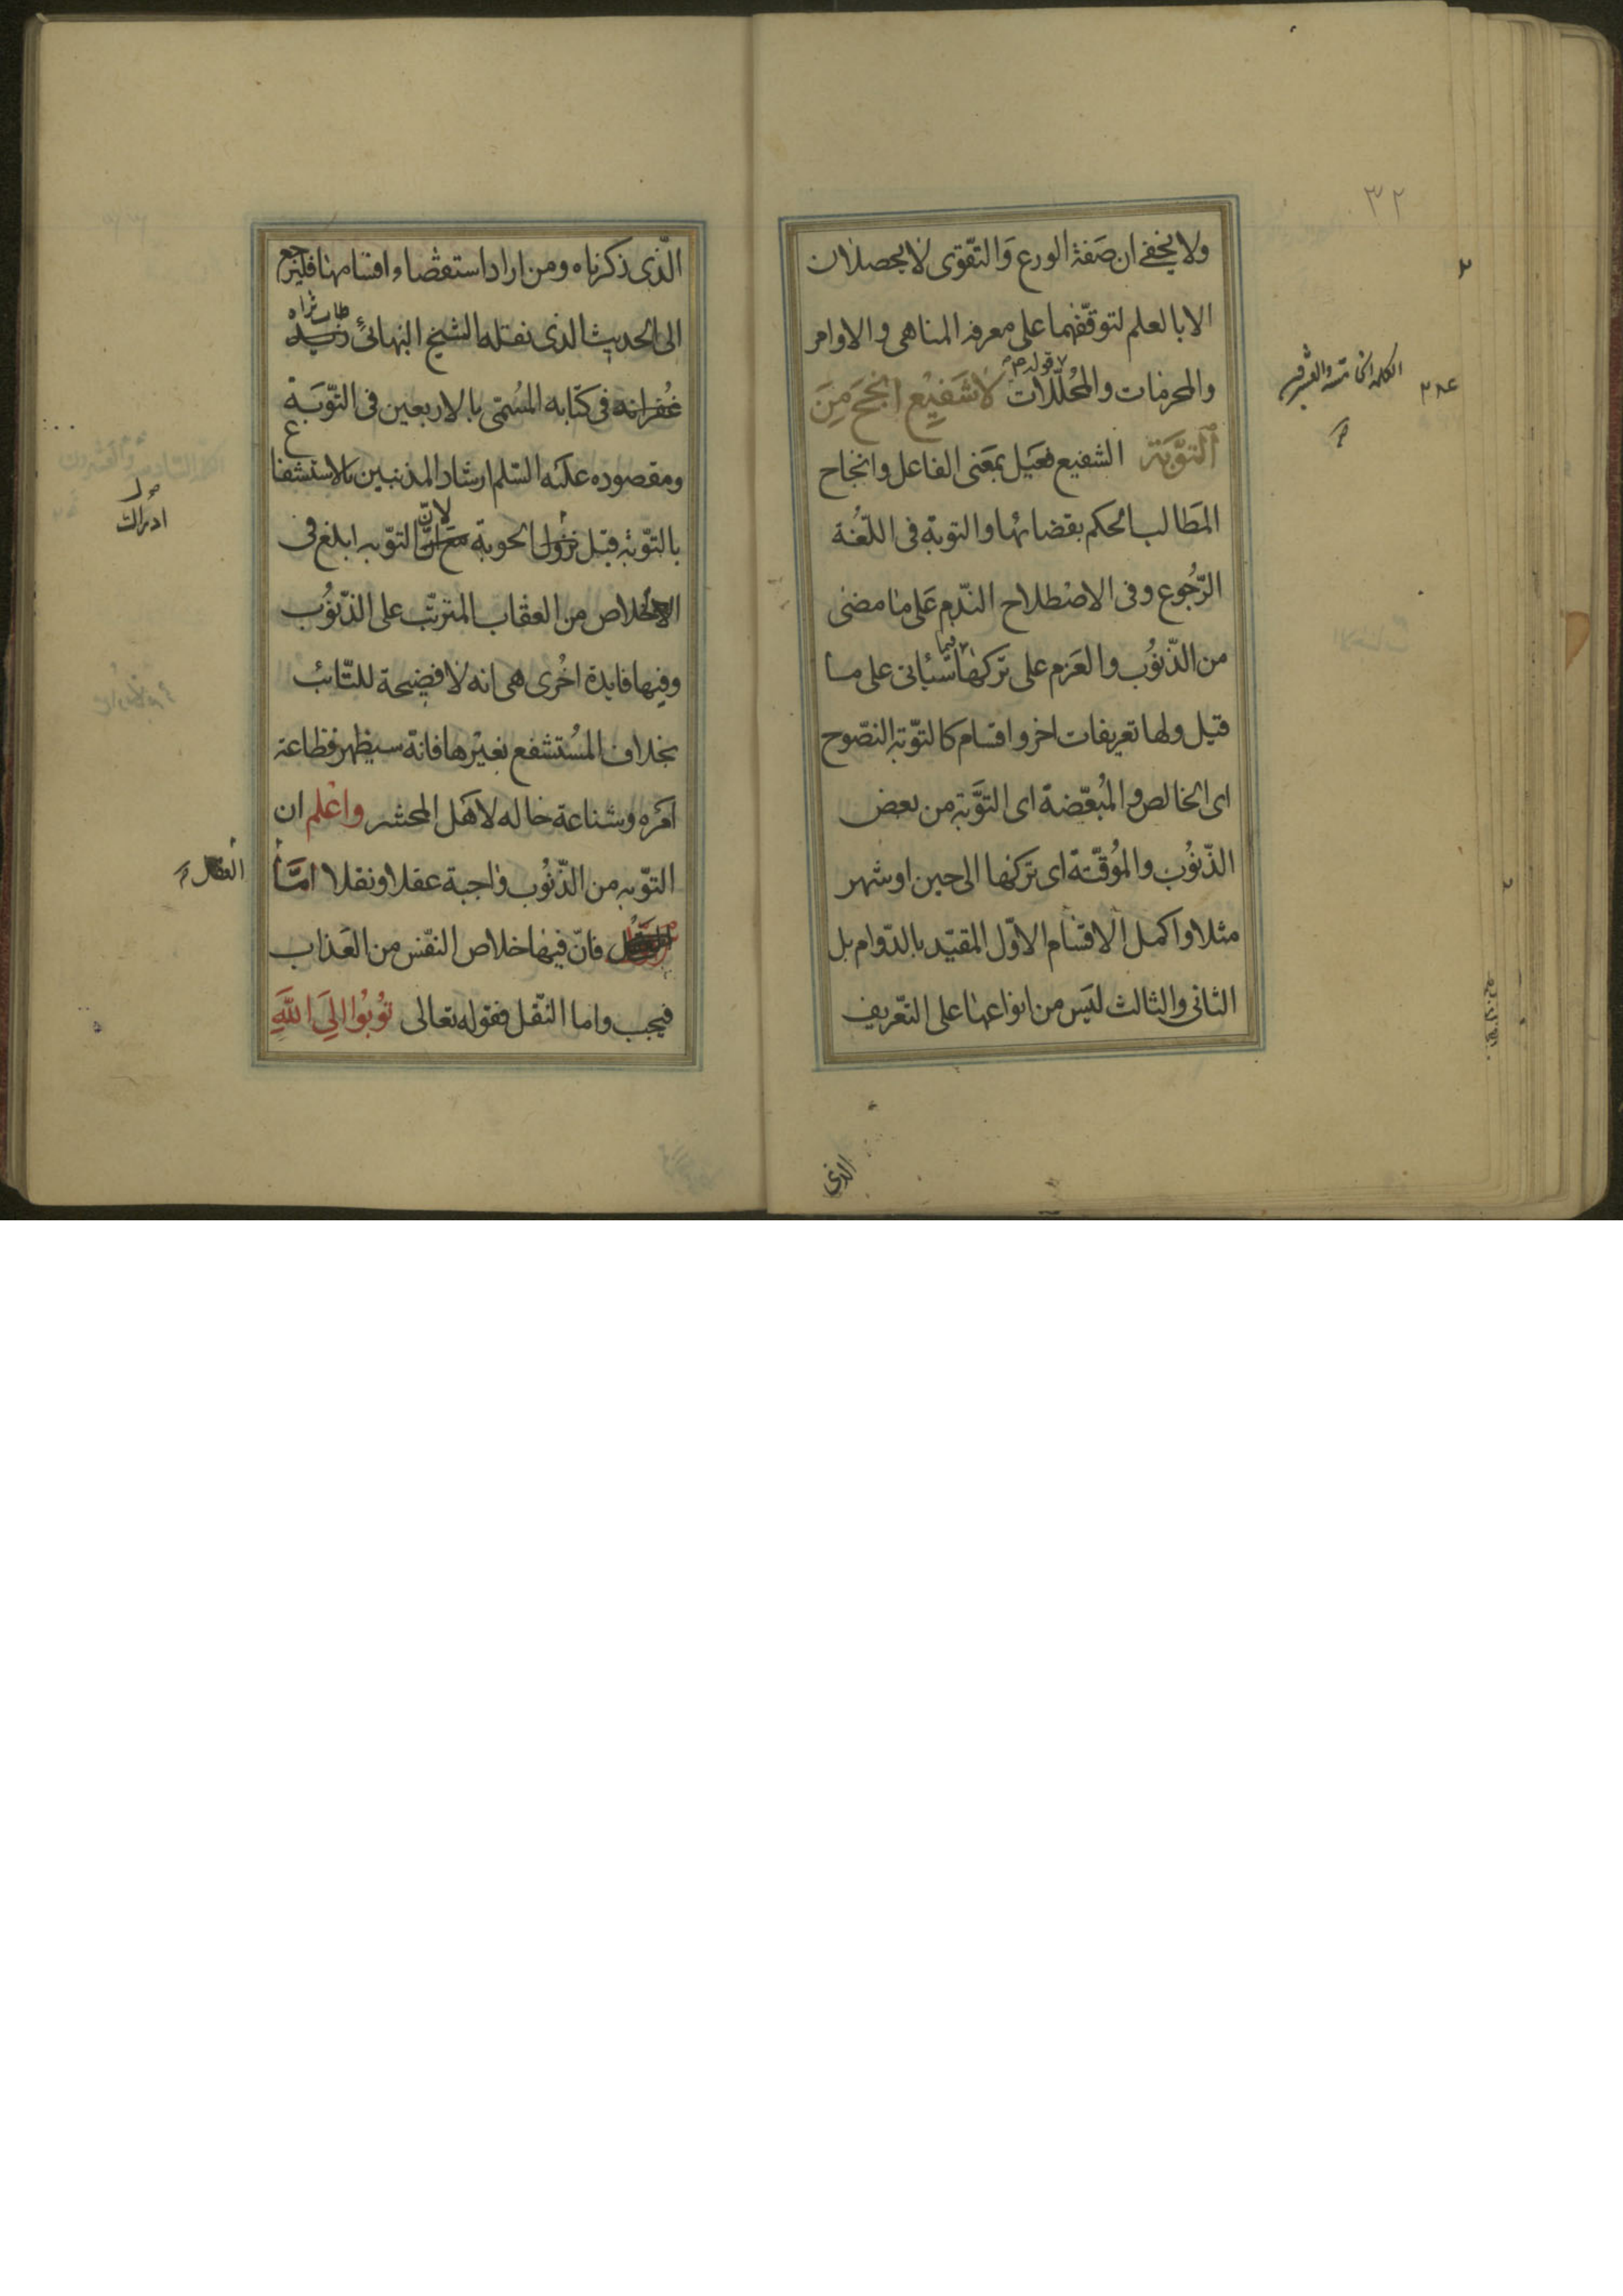 ٣٢
ولا يخفى ان صفة الورع والتّقوى لا يحصلان
الا بالعلم لتوقّفهما على معرفه المناهى و الاوامر
والمحرمات والمُحلّلات قوله لَا شَفيْعَ انجَحَ مِنَ
التّوبَة الشفيع فعيل بمعنى الفاعل وانجاح
المَطالب الحكم بقضائها والتوبة فى اللّغة
الرّجُوع وفى الاصْطلاح النّدم عَلى ما مضى
من الذّنوُب والعَزم على تركها فيما سَيأتى على ما
قيل ولها تعريفات اخر و اقسام كالتّوبة النصّوح
اى الخالص والمُبعّضة اى التوَّبة من بعض
الذّنوُب والموُقّتة اى تركها الى حين او شهر
مثلا واكمل الاقسام الاوّل المقيّد بالدّوام بل
الثانى والثالث ليَس من انواعها على التّعريف
الكلمة الخامسة والعشرون
الذى
الّذى ذكرناه ومن اراد استقصاء اقسامها فليَرجع
الى الحديث الذى نقله الشيخ البهائىّ طاب ثراه
غفرانه فى كتابه المُسمّى بالاربعين فى التّوبَة
ومقصوده عليَه السّلم ارشاد المذنبين بالاستشفاع
بالتّوبة قبل نزول الحوبة لانّ التوّبه ابلغ فى
الخلاص من العقاب المترتّب على الذّنوُب
وفيها فايدة اخُرى هى انه لا فضيحة للتّائب
بخلاف المُستشفع بغيْرها فانّه سيظهر فظاعة
امَره وشناعة حاله لاهَل المحشر واعْلم ان
التوّبه من الذّنوُب واجبة عقلا ونقلا امّا
فانّ فيها خلاص النفّس من العَذاب
فيجب واما النّقل فقوله تعالى توُبوُا اِلَى اللهِ
ادراك
العقل